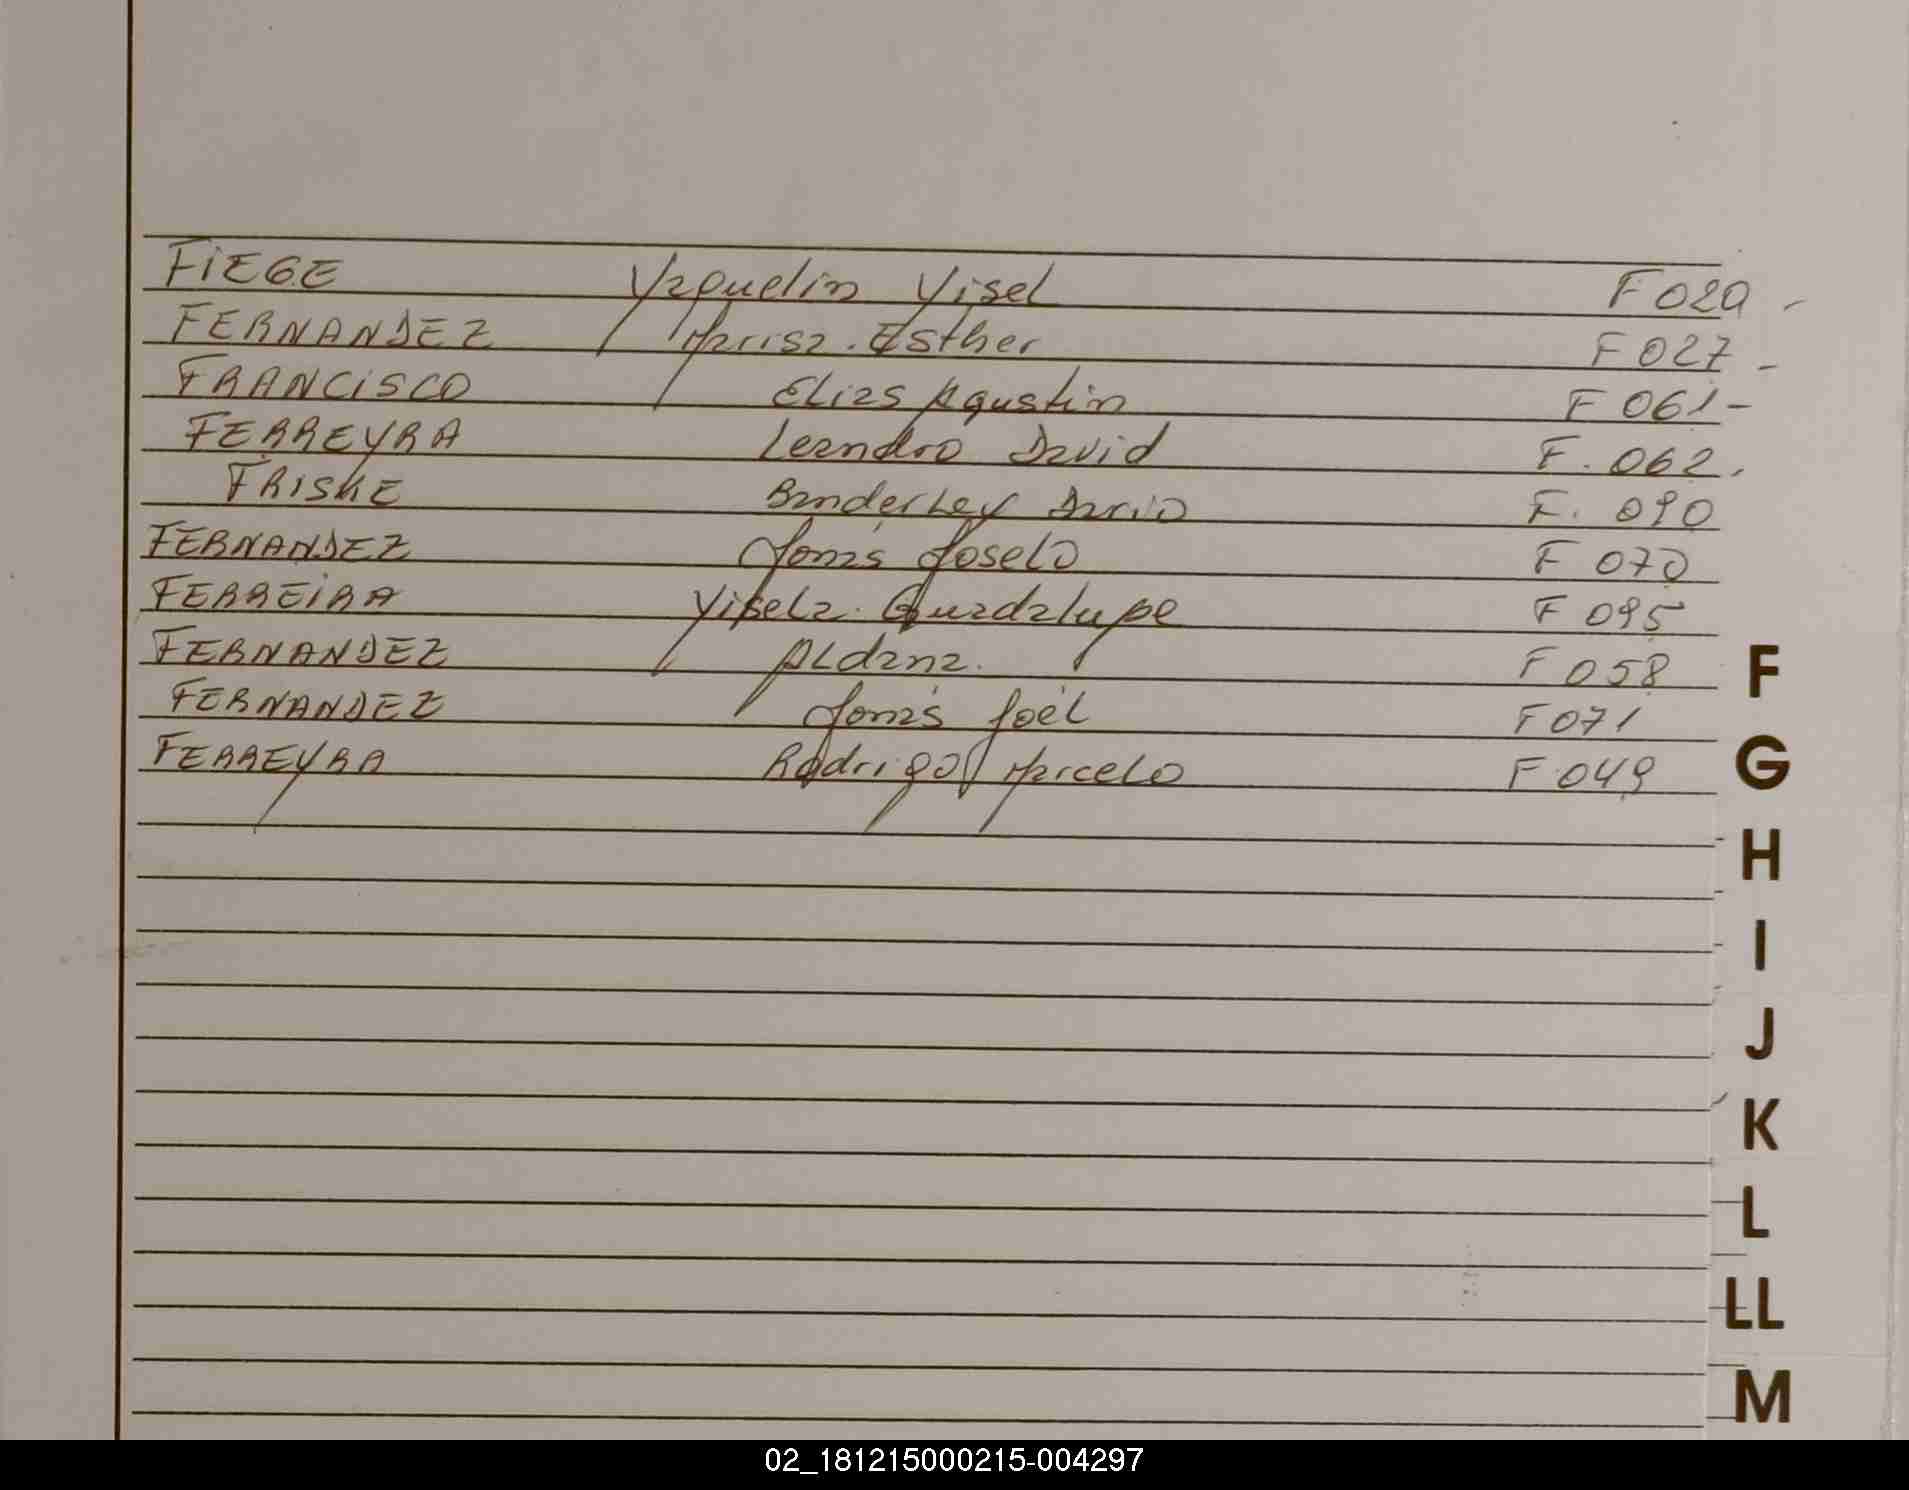 FIEGE Yaquelin Yisel F 029 -
FERNANDEZ Marisa. Esther F 027 -
FRANCISCO Elias Agustin F 061 -
FERREYRA Leandro David F. 062.
FRISKE Banderley Dario F. 090
FERNANDEZ Jonas Joselo F 070
FERREIRA Yisela. Guadalupe F 095
FERNANDEZ Aldana. F 058
FERNANDEZ Jonas Joel F 071
FERREYRA Rodrigo Marcelo F 049
F
G
H
I
J
K
L
LL
M
02_181215000215-004297